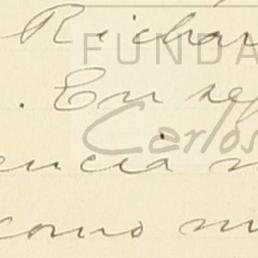 Richar
FUNDA
. En se
Carlos
encia m
como m